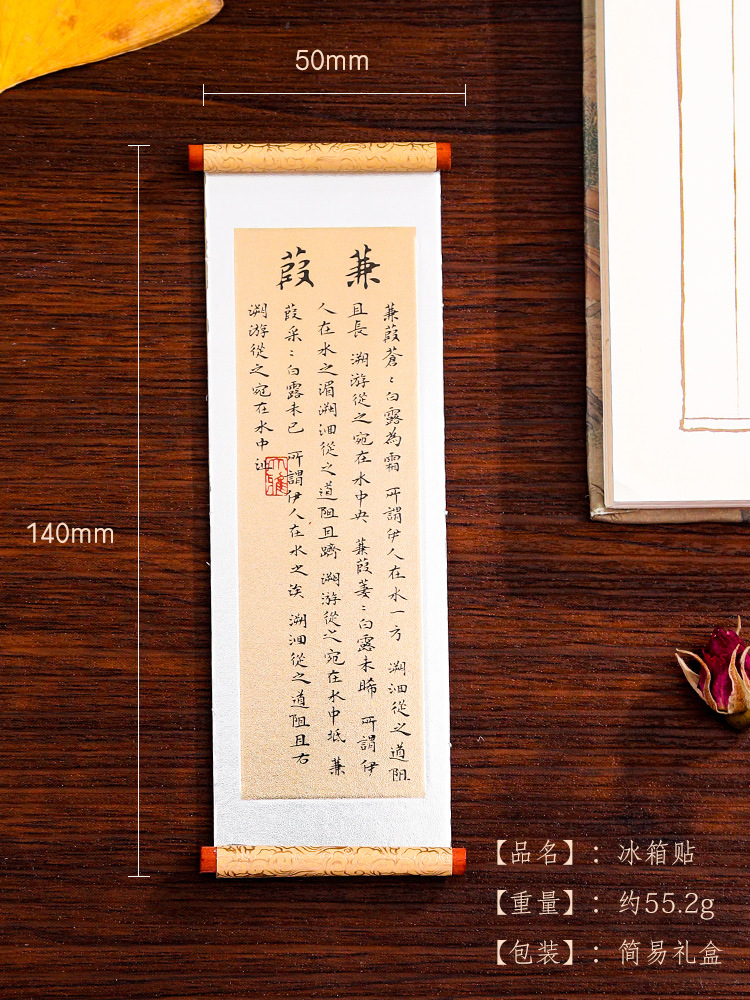 50mm
140mm
蒹葭
蒹葭蒼〻白露為霜 所謂伊人在水一方 溯洄從之道阻
且長 溯游從之宛在水中央 蒹葭萋〻白露未晞 所謂伊
人在水之湄溯洄從之道阻且躋 溯游從之宛在水中坻 蒹
葭采〻白露未已 所謂伊人在水之涘 溯洄從之道阻且右
溯游從之宛在水中沚
【品名】：冰箱贴
【重量】：约55.2g
【包装】：简易礼盒